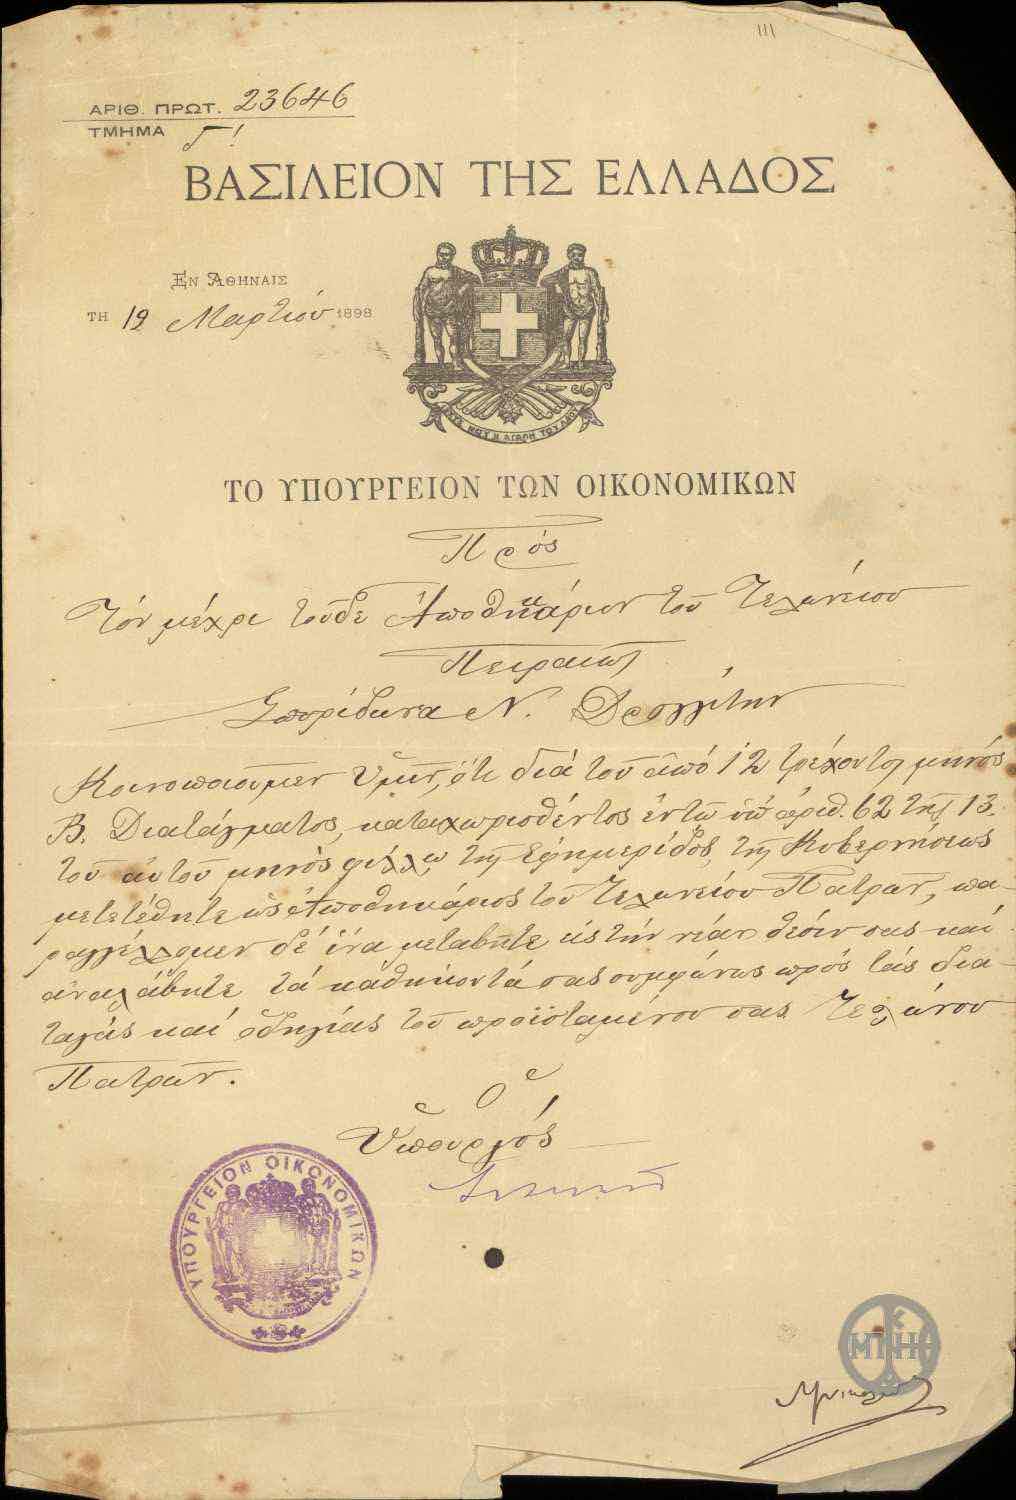 ΑΡΙΘ. ΠΡΩΤ. 23646
ΤΜΗΜΑ Γ'.
ΒΑΣΙΛΕΙΟΝ ΤΗΣ ΕΛΛΑΔΟΣ
ΕΝ ΑΘΗΝΑΙΣ
ΤΗ 19 Μαρτίου 1898
ΤΟ ΥΠΟΥΡΓΕΙΟΝ ΤΩΝ ΟΙΚΟΝΟΜΙΚΩΝ
Πρός
Τόν μέχρι τοῦδε Ἀποθηκάριον τοῦ Τελωνείου
Πειραιῶς
Σπυρίδωνα Ν.
Κοινοποιοῦμεν Ὑμῖν, ὅτι διά τοῦ ἀπό 12 τρέχοντος μηνός
Β. Διατάγματος, καταχωρισθέντος ἐν τῷ ὑπ' ἀριθ. 62 τῆς 13
τοῦ αὐτοῦ μηνός φύλλῳ τῆς Ἐφημερίδος τῆς Κυβερνήσεως
μετετέθητε ὡς Ἀποθηκάριος τοῦ Τελωνείου Πατρῶν, πα-
ραγγέλλομεν δέ ἵνα μεταβῆτε εἰς τήν νέαν θέσιν σας καί
ἀναλάβητε τά καθήκοντά σας συμφώνως πρός τάς δια-
ταγάς καί ὁδηγίας τοῦ προϊσταμένου σας Τελώνου
Πατρῶν.
Ὁ
Ὑπουργός
ΥΠΟΥΡΓΕΙΟΝ ΟΙΚΟΝΟΜΙΚΩΝ